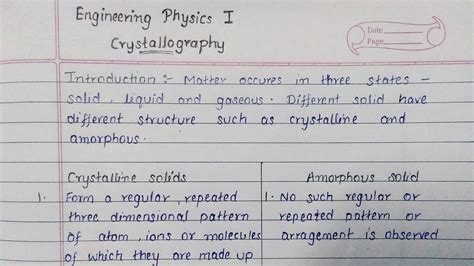 Engineering Physics I
Crystallography
Date
Page
Introduction :- Matter occures in three states -
solid, liquid and gaseous. Different solid have
different structure such as crystalline and
amorphous.
Crystalline solids
1. Form a regular, repeated
three dimensional pattern
of atom, ions or molecules
of which they are made up
Amorphous solid
1. No such regular or
repeated pattern or
arragement is observed